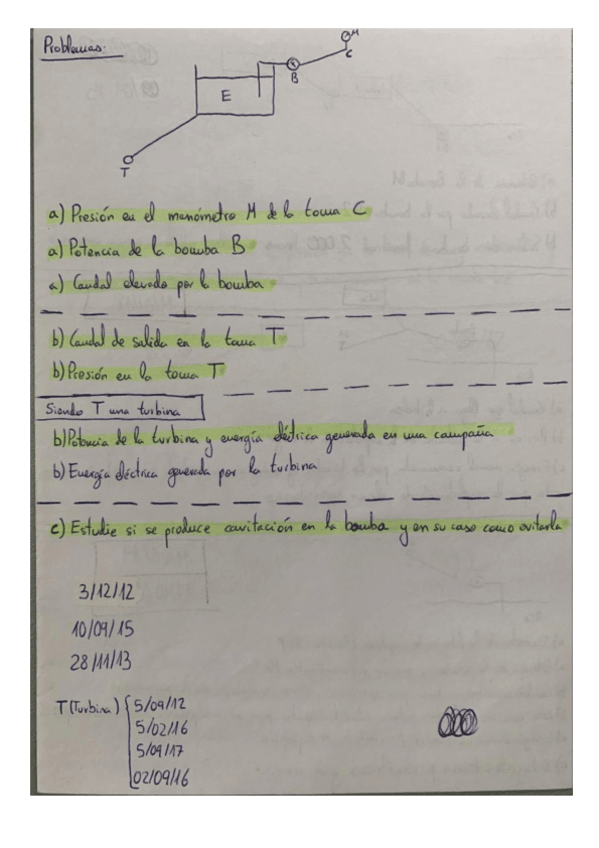 Problemas:
M
C
B
E
T
a) Presión en el manómetro M de la toma C
a) Potencia de la bomba B
a) Caudal elevado por la bomba
b) Caudal de salida en la toma T
b) Presión en la toma T
Siendo T una turbina
b) Potencia de la turbina y energía eléctrica generada en una campaña
b) Energía eléctrica generada por la turbina
c) Estudie si se produce cavitación en la bomba y en su caso como evitarla
3/12/12
10/09/15
28/11/13
T (Turbina) { 5/09/12
5/02/16
5/09/17
02/09/16